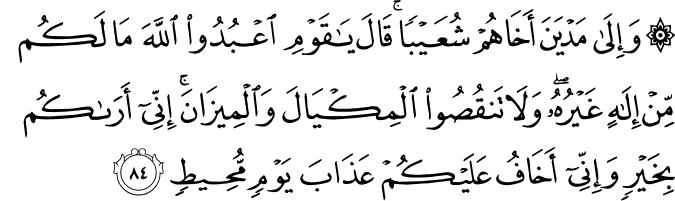 ۞ وَإِلَىٰ مَدۡيَنَ أَخَاهُمۡ شُعَيۡبٗاۚ قَالَ يَٰقَوۡمِ ٱعۡبُدُواْ ٱللَّهَ مَا لَكُم
مِّنۡ إِلَٰهٍ غَيۡرُهُۥۖ وَلَا تَنقُصُواْ ٱلۡمِكۡيَالَ وَٱلۡمِيزَانَۚ إِنِّيٓ أَرَىٰكُم
بِخَيۡرٖ وَإِنِّيٓ أَخَافُ عَلَيۡكُمۡ عَذَابَ يَوۡمٖ مُّحِيطٖ ٨٤